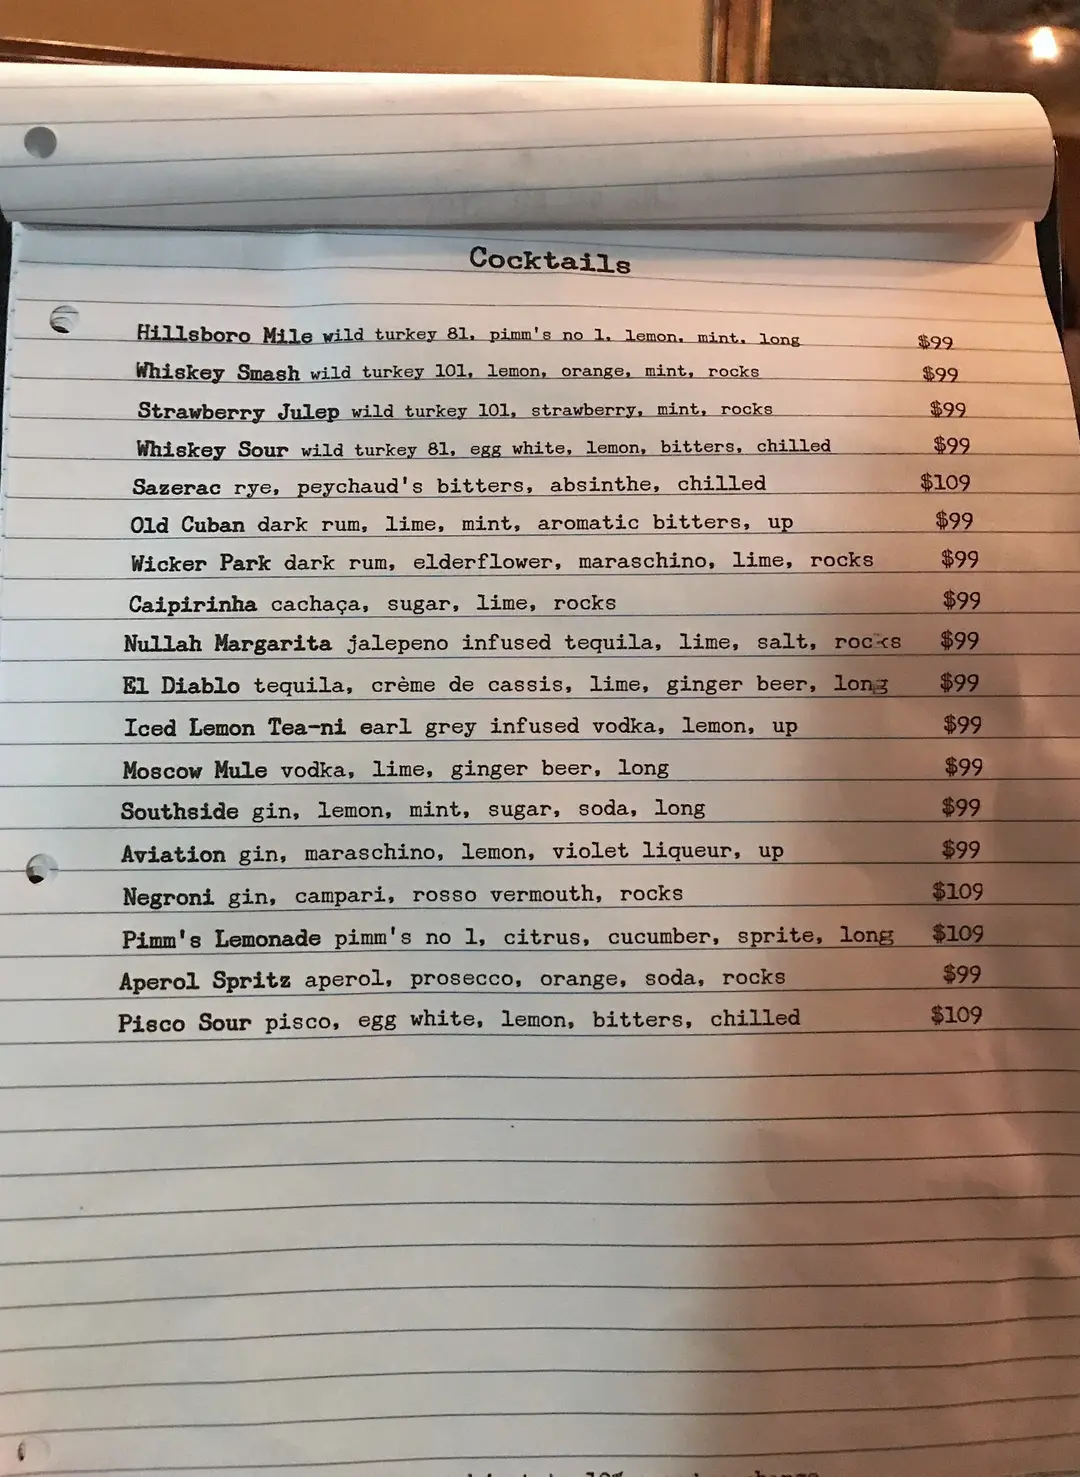 Cocktails
Hillsboro Mile wild turkey 81, pimm's no 1, lemon, mint, long $99
Whiskey Smash wild turkey 101, lemon, orange, mint, rocks $99
Strawberry Julep wild turkey 101, strawberry, mint, rocks $99
Whiskey Sour wild turkey 81, egg white, lemon, bitters, chilled $99
Sazerac rye, peychaud's bitters, absinthe, chilled $109
Old Cuban dark rum, lime, mint, aromatic bitters, up $99
Wicker Park dark rum, elderflower, maraschino, lime, rocks $99
Caipirinha cachaça, sugar, lime, rocks $99
Nullah Margarita jalepeno infused tequila, lime, salt, rocks $99
El Diablo tequila, crème de cassis, lime, ginger beer, long $99
Iced Lemon Tea-ni earl grey infused vodka, lemon, up $99
Moscow Mule vodka, lime, ginger beer, long $99
Southside gin, lemon, mint, sugar, soda, long $99
Aviation gin, maraschino, lemon, violet liqueur, up $99
Negroni gin, campari, rosso vermouth, rocks $109
Pimm's Lemonade pimm's no 1, citrus, cucumber, sprite, long $109
Aperol Spritz aperol, prosecco, orange, soda, rocks $99
Pisco Sour pisco, egg white, lemon, bitters, chilled $109